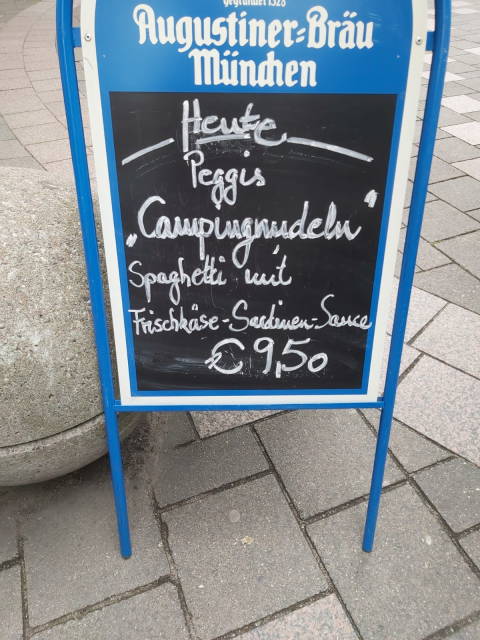 gegründet 1328
Augustiner-Bräu
München
Heute
Peggis
„Campingnudeln"
Spaghetti mit
Frischkäse-Sardinen-Sauce
€ 9,50